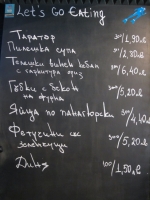 Let's Go Eating
Таратор 300/1,90лв
Пилешка супа 300/2,80лв
Телешки винен кебап
с гарнитура ориз 300/6,40лв
Гъби с бекон
на фурна 300/5,20лв
Яйца по панагюрски 300/4,40
Фетучини със
зеленчуци 300/5,20лв
Диня 400/1,50лв